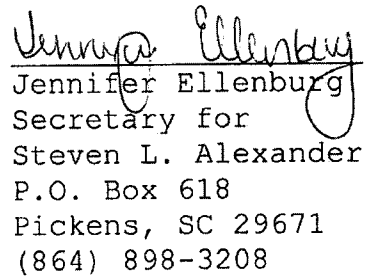 Jennifer Ellenburg
Jennifer Ellenburg
Secretary for
Steven L. Alexander
P.O. Box 618
Pickens, SC 29671
(864) 898-3208